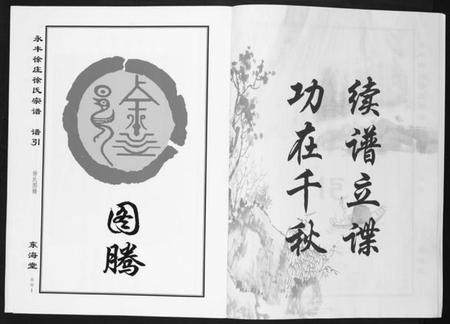 永丰徐庄徐氏宗谱 谱引
徐氏图腾
东海堂
图腾
续谱立谍
功在千秋